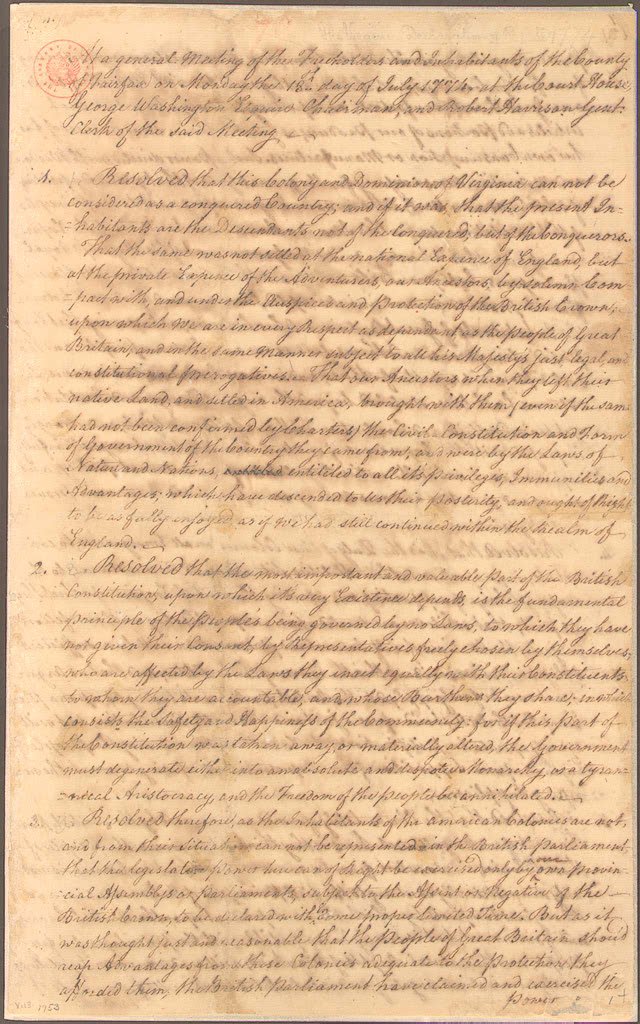 At a general Meeting of the Freeholders and Inhabitants of the County
of Fairfax on Monday the 18th day of July 1774, at the Court House,
George Washington Esquire Chairman, and Robert Harrison Gent:
Clerk of the said Meeting
1. Resolved that this Colony and Dominion of Virginia can not be
considered as a conquered Country; and if it was, that the present In-
-habitants are the Descendants not of the Conquered, but of the Conquerors.
That the same was not setled at the national Expence of England, but
at the private Expence of the Adventurers, our Ancestors, by solemn Com
=pact with, and under the Auspices and Protection of the British Crown;
upon which we are in every Respect as dependant as the People of Great
Britain, and in the same Manner subject to all his Majesty's just, legal, and
constitutional Prerogatives. That our Ancestors, when they left their
native Land, and setled in America, brought with them (even if the same
had not been confirmed by Charters) the Civil-Constitution and Form
of Government of the Country they came from; and were by the Laws of
Nature and Nations, entitiled to all its Privileges, Immunities and
Advantages; which have descended to us their Posterity, and ought of Right
to be as fully enjoyed, as if we had still continued within the Realm of
England.
2. Resolved that the most important and valuable Part of the British
Constitution, upon which its very Existence depends, is the fundamental
Principle of the People's being governed by no Laws, to which they have
not given their Consent, by Representatives freely chosen by themselves;
who are affected by the Laws they enact equally with their Constituents;
to whom they are accountable, and whose Burthens they share; in which
consists the Safety and Happiness of the Community: for if this Part of
the Constitution was taken away, or materially altered, the Government
must degenerate either into an absolute and despotic Monarchy, or a tyran-
-nical Aristocracy, and the Freedom of the People be annihilated.
3. Resolved therefore, as the Inhabitants of the american Colonies are not,
and from their Situation can not be represented in the British Parliament,
that the legislative Power here can of Right be exercised only by our own Provin-
-cial Assemblys or Parliaments, subject to the Assent or Negative of the
British Crown, to be declared within some proper limited Time. But as it
was thought just and reasonable that the People of Great Britain should
reap Advantages from these Colonies adequate to the Protection they
afforded them, the British Parliament have claimed and exercised the
Power
1753